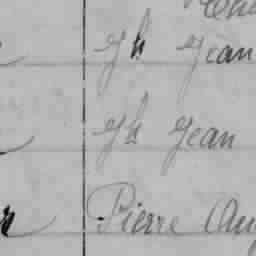 Jh Jean
Jh Jean
Pierre Aug